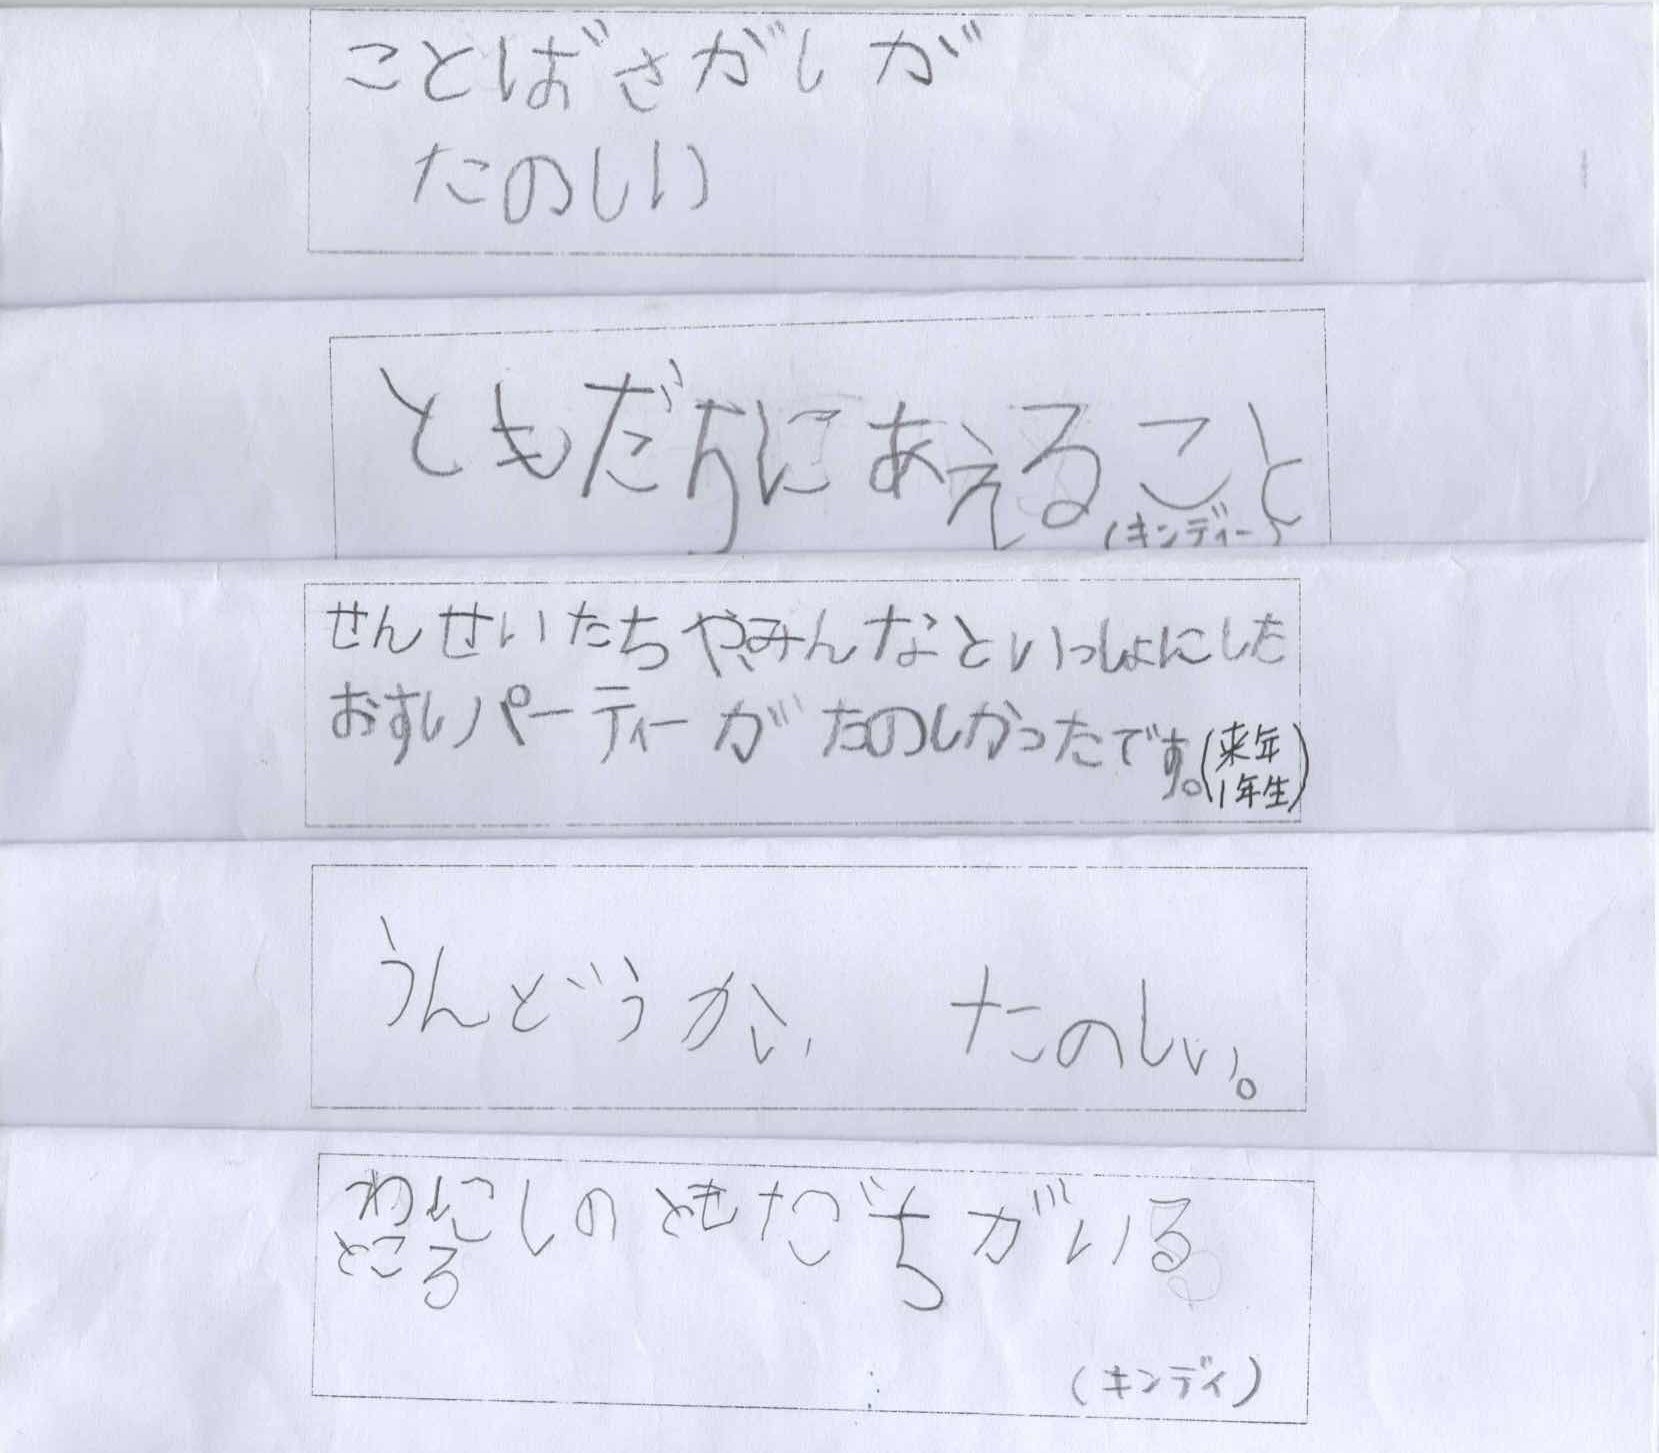 ことばさがしが
たのしい
ともだちにあえること
(キンディー)
せんせいたちやみんなといっしょにした
おすしパーティーがたのしかったです。(来年
1年生)
うんどうかい たのしい。
わたしのともだちがいる
ところ
(キンディ)